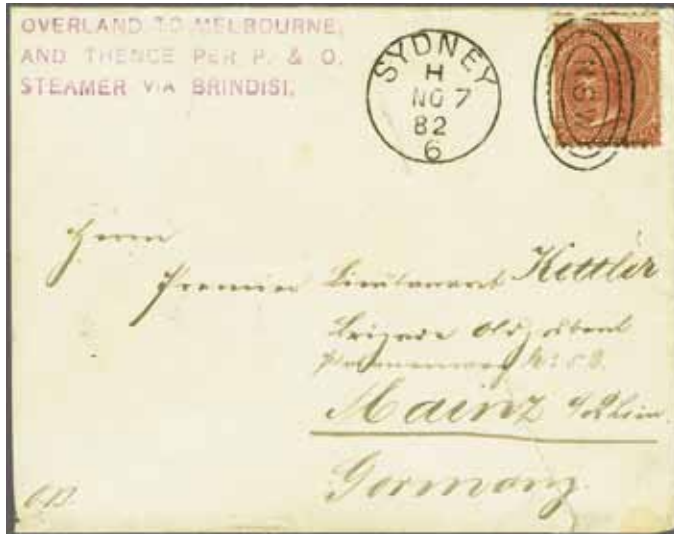 OVERLAND TO MELBOURNE,
AND THENCE PER P. & O.
STEAMER VIA BRINDISI.
SYDNEY
H
NO 7
82
6
NSW
Herrn
Premier Lieutenant Kettler
Brigade
Mainz a/Rhein
Germany